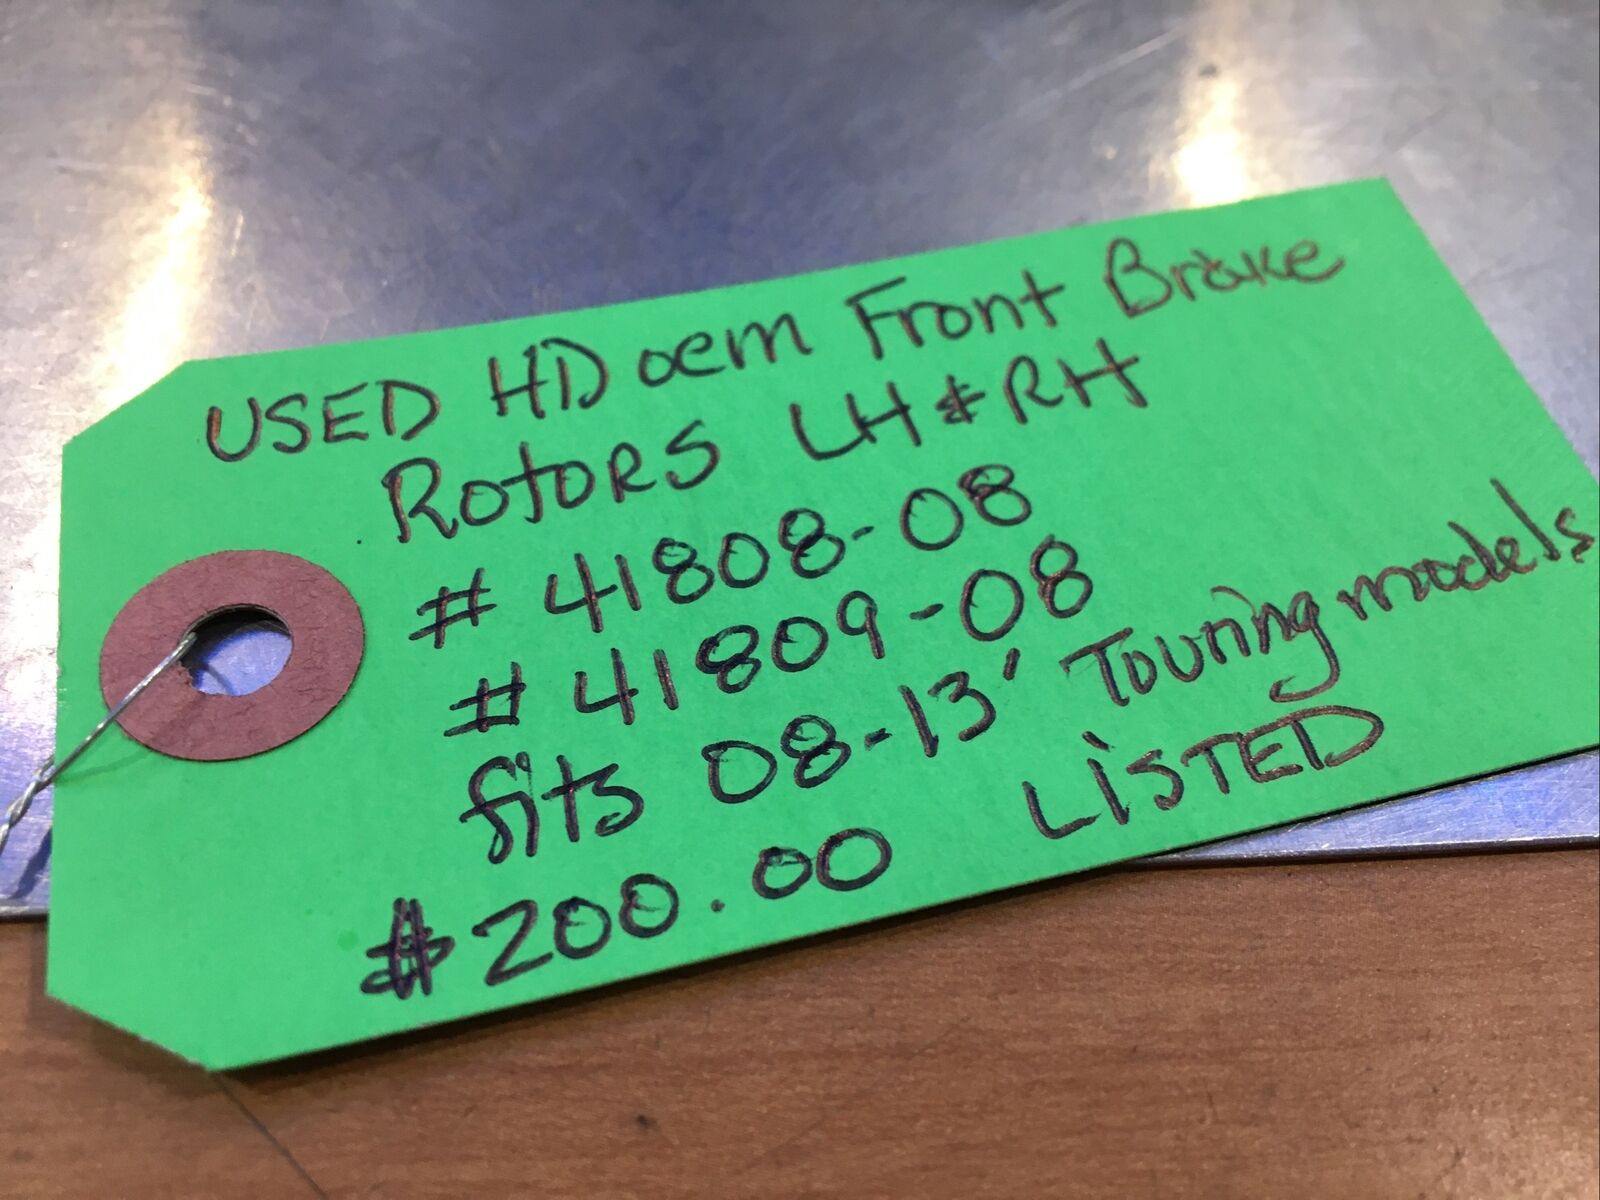 USED HD oem Front Brake
Rotors LH & RH
# 41808-08
# 41809-08
fits 08-13' Touring models
$200.00 LiSTED